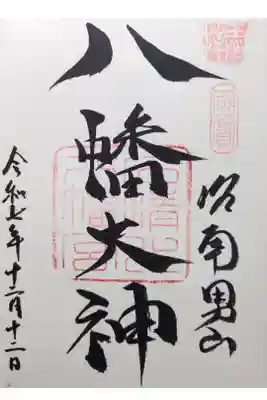 洛南男山
八幡大神
令和七年十二月十二日